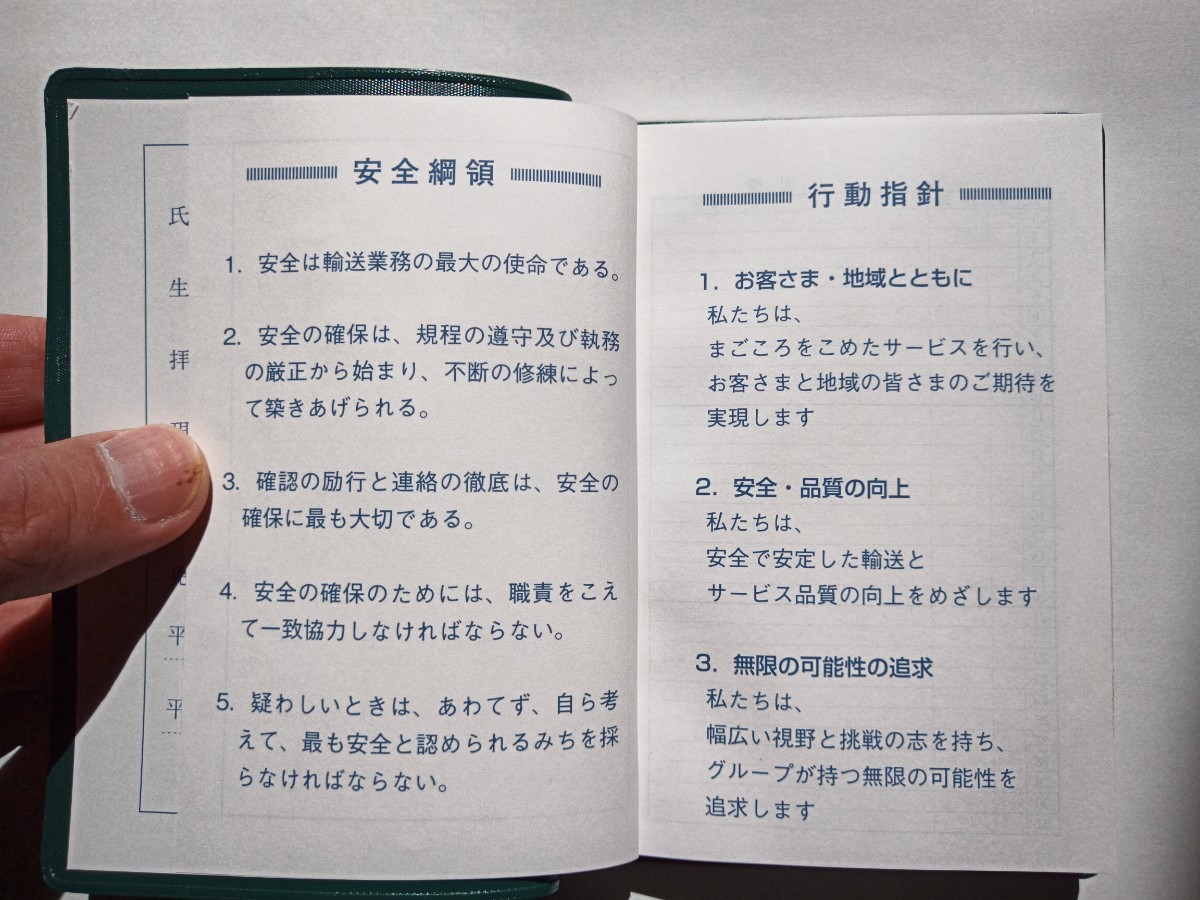 氏
生
拝
平
平
安全綱領
1. 安全は輸送業務の最大の使命である。
2. 安全の確保は、規程の遵守及び執務
の厳正から始まり、不断の修練によっ
て築きあげられる。
3. 確認の励行と連絡の徹底は、安全の
確保に最も大切である。
4. 安全の確保のためには、職責をこえ
て一致協力しなければならない。
5. 疑わしいときは、あわてず、自ら考
えて、最も安全と認められるみちを採
らなければならない。
行動指針
1. お客さま・地域とともに
私たちは、
まごころをこめたサービスを行い、
お客さまと地域の皆さまのご期待を
実現します
2. 安全・品質の向上
私たちは、
安全で安定した輸送と
サービス品質の向上をめざします
3. 無限の可能性の追求
私たちは、
幅広い視野と挑戦の志を持ち、
グループが持つ無限の可能性を
追求します